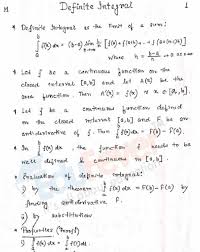 M Definite Integral 1
* Definite Integral is the limit of a sum:
∫ₐᵇ f(x) dx = (b-a) lim n→∞ 1/n [f(a) + f(a+h) + ... + f(a+(n-1)h)]
where h = (b-a)/n → 0 as n→∞
* Let f be a continuous function on the
closed interval [a, b] and let A(x) be the
area function. Then A'(x) = f(x) ∀ x ∈ [a, b]
* Let f be a continuous function defined
on the closed interval [a, b] and F be an
antiderivative of f. Then ∫ₐᵇ f(x) dx = F(b) - F(a)
* In ∫ₐᵇ f(x) dx, the function f needs to be
well defined & continuous in [a, b].
* Evaluation of definite integral:
i) by the theorem ∫ₐᵇ f(x) dx = F(b) - F(a) by
finding antiderivative F.
ii) by substitution
* Properties (Proof)
i) ∫ₐᵇ f(x) dx = ∫ₐᵇ f(t) dt